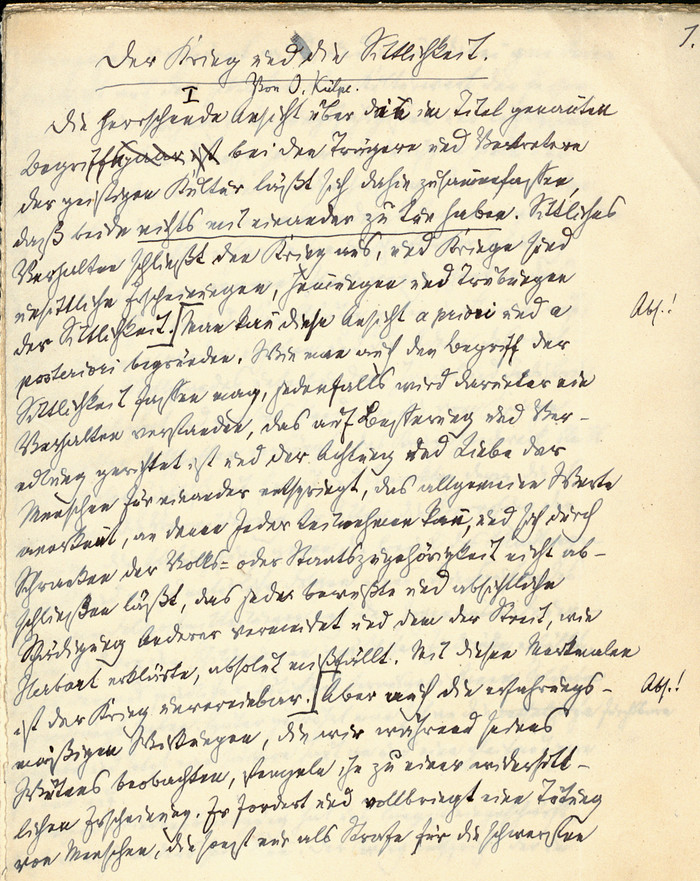 1.
Der Krieg und die Sittlichkeit.
Von O. Külpe.
I
Die herrschende Ansicht über die im Titel genannten
Begriffe bei den Trägern und Vertretern
der geistigen Kultur läßt sich dahin zusammenfassen,
daß beide nichts mit einander zu tun haben. Sittliches
Verhalten schließt den Krieg aus, und Kriege sind
unsittliche Erscheinungen, Hemmungen und Trübungen
der Sittlichkeit. Man kann diese Ansicht a priori und a
Abs.!
posteriori begründen. Wie man auch den Begriff der
Sittlichkeit fassen mag, jedenfalls wird darunter ein
Verhalten verstanden, das auf Besserung und Ver-
edlung gerichtet ist und der Achtung und Liebe der
Menschen für einander entspringt, das allgemeine Werte
anerkennt, an denen Jeder teilnehmen kann, und sich durch
Schranken der Volks- oder Staatszugehörigkeit nicht ab-
schließen läßt, das jede bewußte und absichtliche
Schädigung Anderer vermeidet und dem der Streit, wie
Herbart erklärte, absolut mißfällt. Mit diesen Merkmalen
ist der Krieg unvereinbar. Aber auch die erfahrungs-
Abs.!
mäßigen Wirkungen, die wir während seines
Wütens beobachten, stempeln ihn zu einer widersitt-
lichen Erscheinung. Er fordert und vollbringt eine Tötung
von Menschen, die sonst nur als Strafe für die schwersten